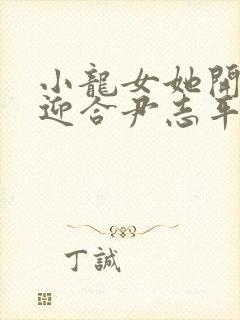 小龍女她開
迎合尹志平
丁誠